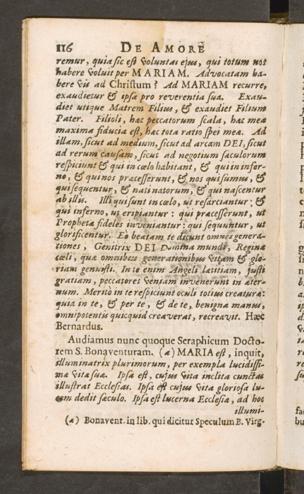 116 DE AMORE
remur, quia sic est voluntas ejus, qui totum not
habere voluit per MARIAM. Advocatam ha-
bere vis ad Christum? Ad MARIAM recurre,
exaudietur & ipsa pro reverentia sua. Exau-
diet utique Matrem Filius, & exaudiet Filium
Pater. Filioli, hæc peccatorum scala, hæc mea
maxima fiducia est, hæc tota ratio spei meæ. Ad
illam, sicut ad medium, sicut ad arcam DEI, sicut
ad rerum causam, sicut ad negotium sæculorum
respiciunt & qui in cœlo habitant, & qui in infer-
no, & qui nos præcesserunt, & nos qui sumus, &
qui sequentur, & nati natorum, & qui nascentur
ab illis. Illi qui sunt in cœlo, ut resarciantur: &
qui inferno, ut eripiantur: qui præcesserunt, ut
Prophetæ fideles inveniantur: qui sequuntur, ut
glorificentur. Eo beatam te dicunt omnes genera-
tiones, Genitrix DEI Domina mundi, Regina
cœli, quæ omnibus generationibus vitam & glo-
riam genuisti. In te enim Angeli lætitiam, justi
gratiam, peccatores veniam invenerunt in æter-
num. Merito in te respiciunt oculi totius creaturæ:
quia in te, & per te, & de te, benigna manus,
omnipotentis quicquid creaverat, recreavit. Hæc
Bernardus.
Audiamus nunc quoque Seraphicum Docto-
rem S. Bonaventuram. (a) MARIA est, inquit,
illuminatrix plurimorum, per exempla lucidissi-
mæ vitæ suæ. Ipsa est, cujus vita inclita cunctas
illustrat Ecclesias. Ipsa est cujus vita gloriosa lu-
cem dedit sæculo. Ipsa est lucerna Ecclesiæ, ad hoc
illumi-
(a) Bonavent. in lib. qui dicitur Speculum B. Virg.